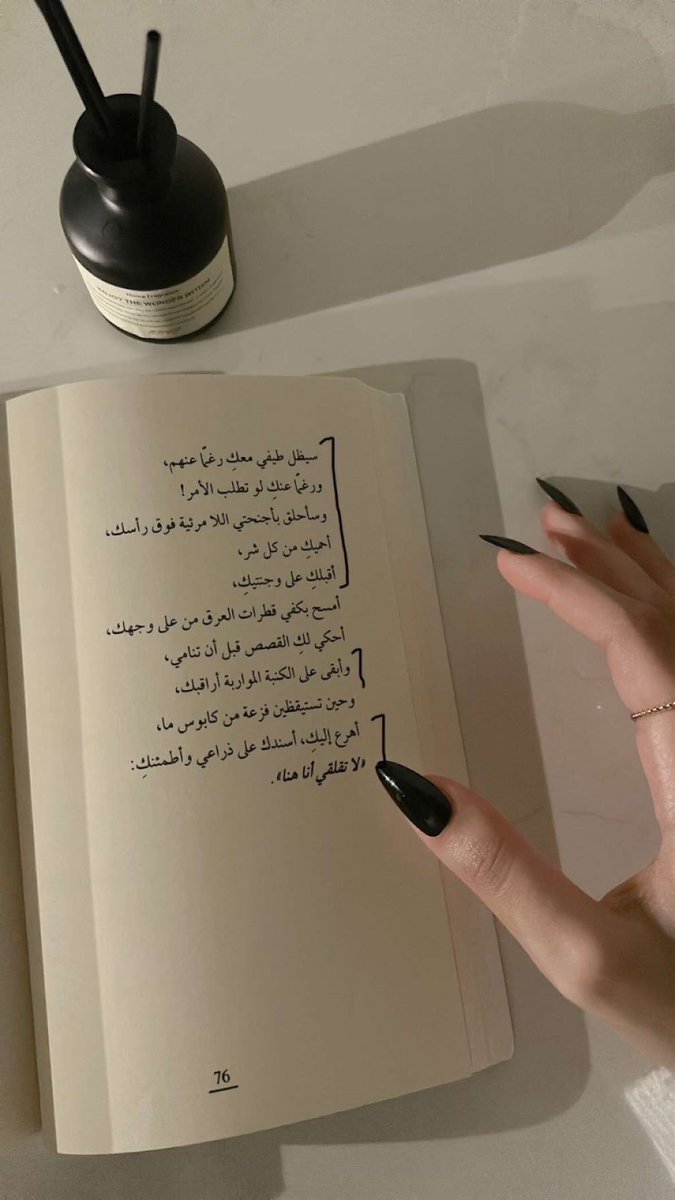 Home Fragrance
ENJOY THE WONDER WITHIN
سيظل طيفي معكِ رغمًا عنهم،
ورغمًا عنكِ لو تطلب الأمر!
وسأحلق بأجنحتي اللا مرئية فوق رأسك،
أحميكِ من كل شر،
أقبلكِ على وجنتيكِ،
أمسح بكفي قطرات العرق من على وجهك،
أحكي لكِ القصص قبل أن تنامي،
وأبقى على الكنبة المواربة أراقبك،
وحين تستيقظين فزعة من كابوس ما،
أهرع إليكِ، أسندك على ذراعي وأطمئنكِ:
«لا تقلقي أنا هنا».
76